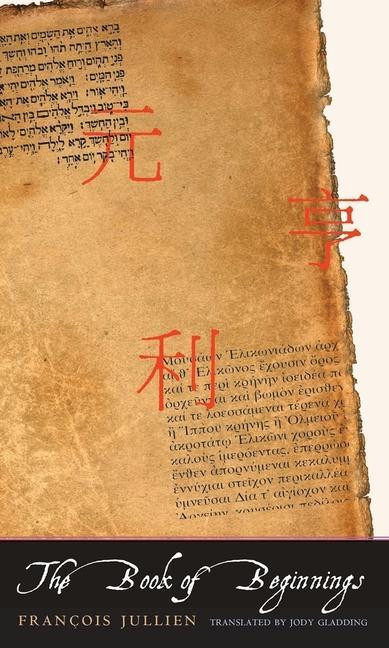 ברא אלהים את השמים ואת הא
והארץ היתה תהו ובהו וחשך
פני תהום ורוח אלהים מרחפת
פני המים: ויאמר אלהים יהי
ויהי־אור: וירא אלהים
כי־טוב ויבדל אלהים בין
ובין החשך: ויקרא אלהים לאור
יום ולחשך קרא לילה
ויהי־בקר יום אחד:
元
亨
利
Μουσάων Ἑλικωνιάδων ἀρχ
Ἑλικῶνος ἔχουσιν ὄρος
καί τε περὶ κρήνην ἰοειδέα πό
ὀρχεῦνται καὶ βωμὸν ἐρισθεν
καί τε λοεσσάμεναι τέρενα χρ
ἢ Ἵππου κρήνης ἢ Ὀλμειοῦ
ἀκροτάτῳ Ἑλικῶνι χοροὺς
καλούς ἱμερόεντας, ἐπερρώσα
ἔνθεν ἀπορνύμεναι κεκαλυμ
ἐννύχιαι στεῖχον περικαλλέα
ὑμνεῦσαι Δία τ' αἰγίοχον καὶ
Ἀργείην, χρυσέοισι πεδίλοις
The Book of Beginnings
FRANÇOIS JULLIEN TRANSLATED BY JODY GLADDING